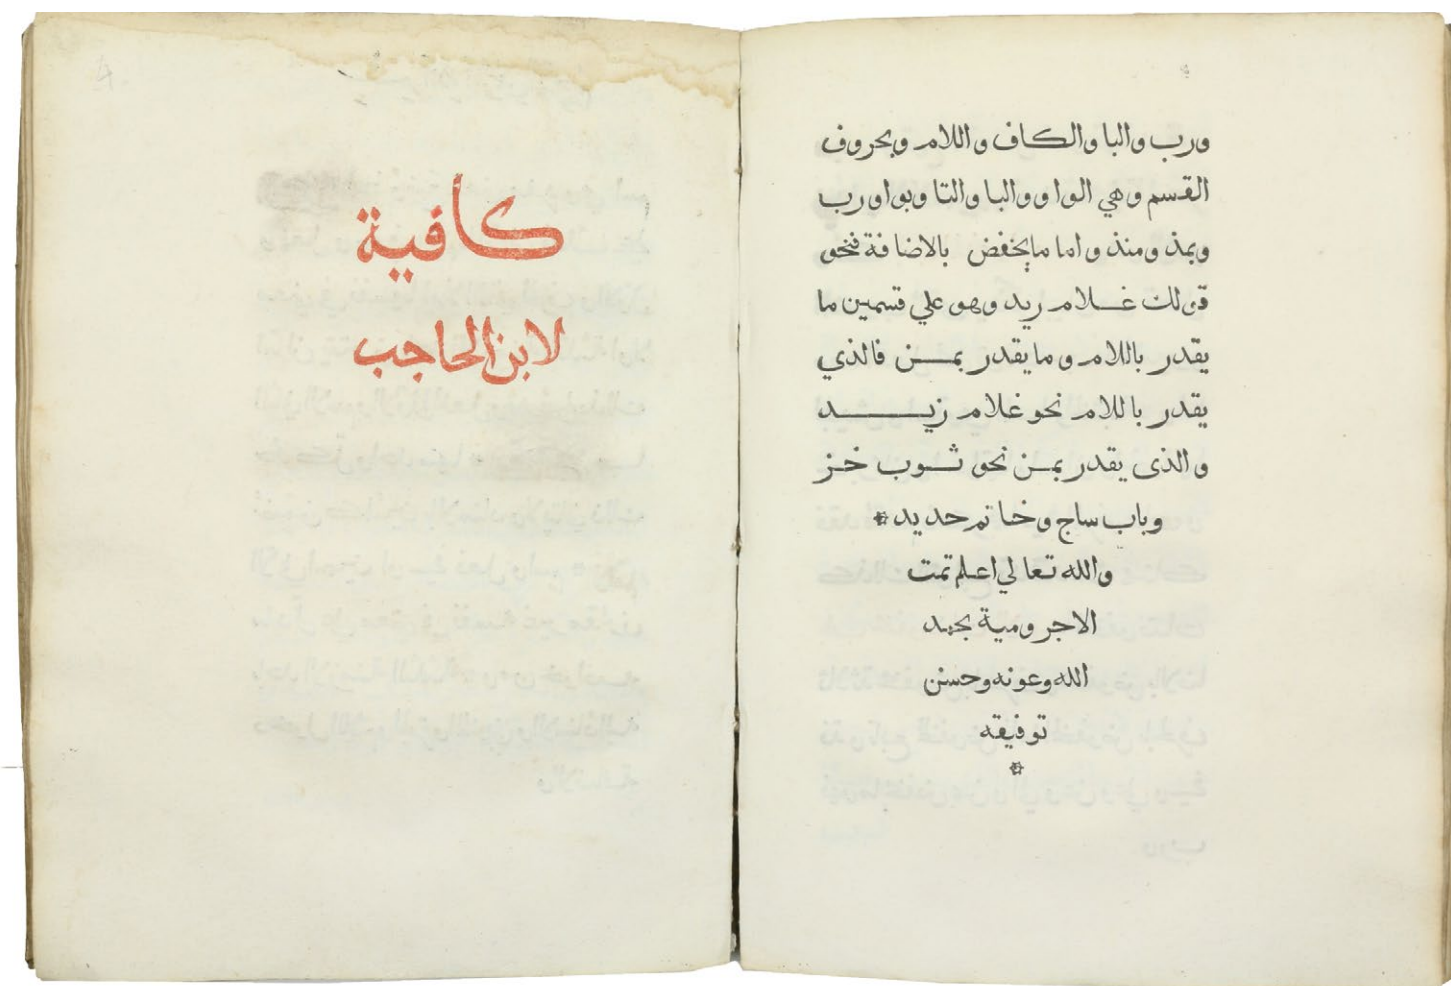 ورب والبا والكاف واللام وبحروف
القسم وهي الواو والبا والتا وبواو رب
وبمذ ومنذ واما ما يخفض بالاضافة فنحو
قولك غلام ريد وهو علي قسمين ما
يقدر باللام وما يقدر بمن فالذي
يقدر باللام نحو غلام زيد
والذى يقدر بمن نحو ثوب خز
وباب ساج وخاتم حديد
والله تعالي اعلم تمت
الاجرومية بحمد
الله وعونه وحسن
توفيقه
كافية
لابن الحاجب